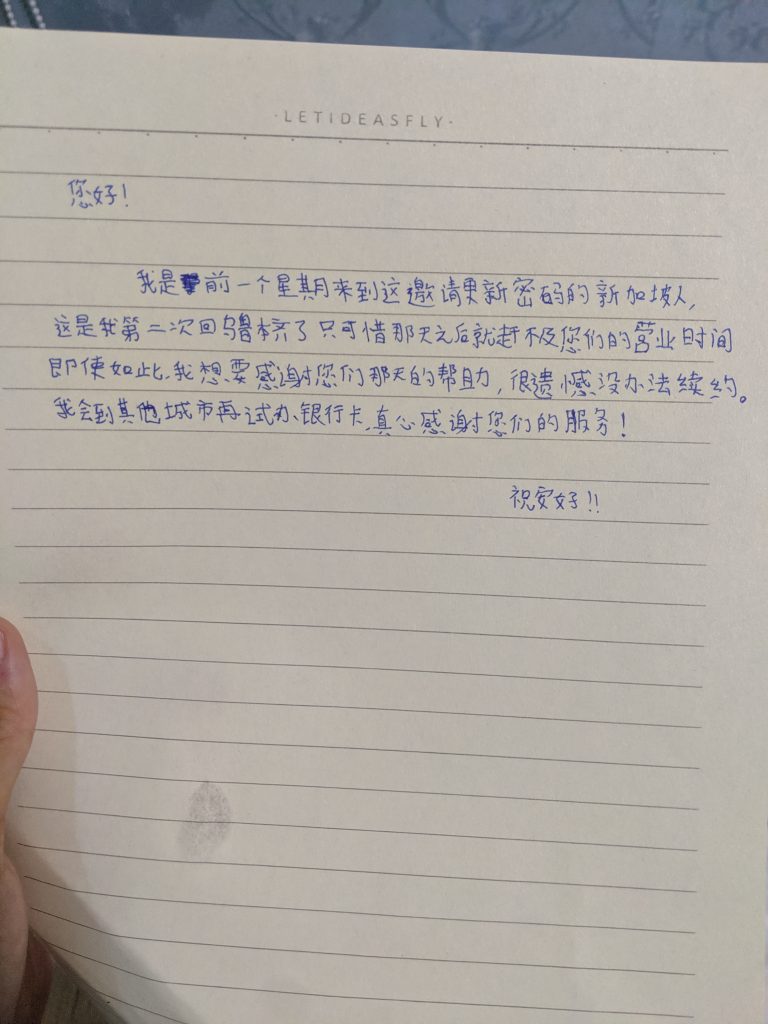 ·LETIDEASFLY·
您好!
我是前一个星期来到这邀请更新密码的新加坡人,
这是我第二次回乌鲁木齐了只可惜那天之后就赶不及您们的营业时间
即使如此,我想要感谢您们那天的帮助,很遗憾没办法续约。
我会到其他城市再试办银行卡,真心感谢您们的服务!
祝安好!!